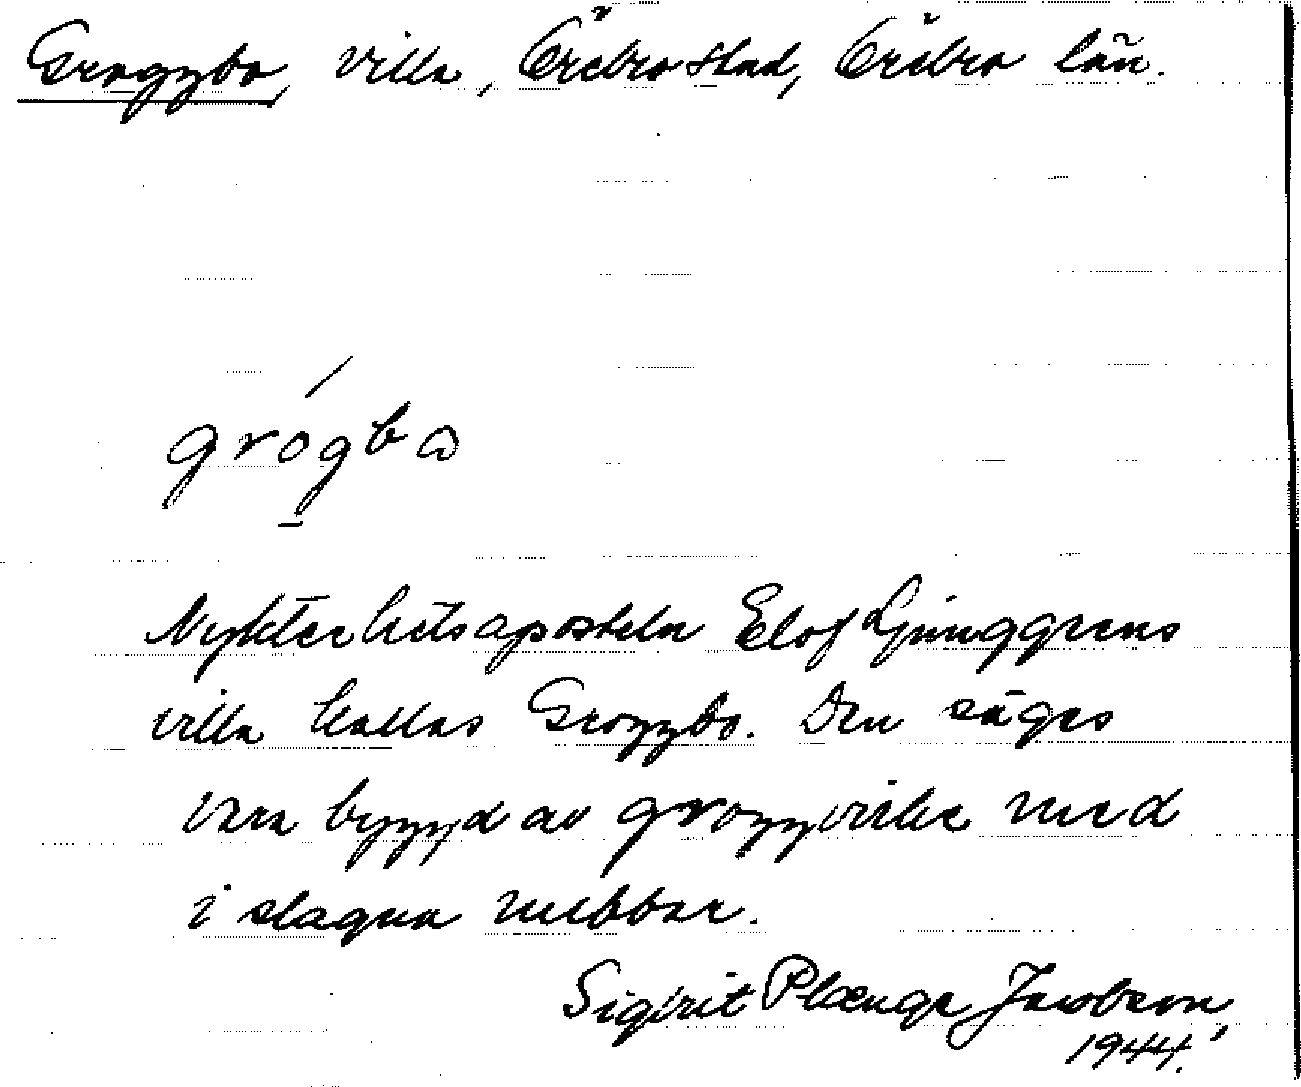 Groggbo, villa, Örebro stad, Örebro län.
grógbω
Nykterhetsaposteln Elof Ljunggrens
villa kallas Groggbo. Den säges
vara byggd av groggvirke med
i slagna nubbar.
Sigbrit Plænge Jacobson,
1944.